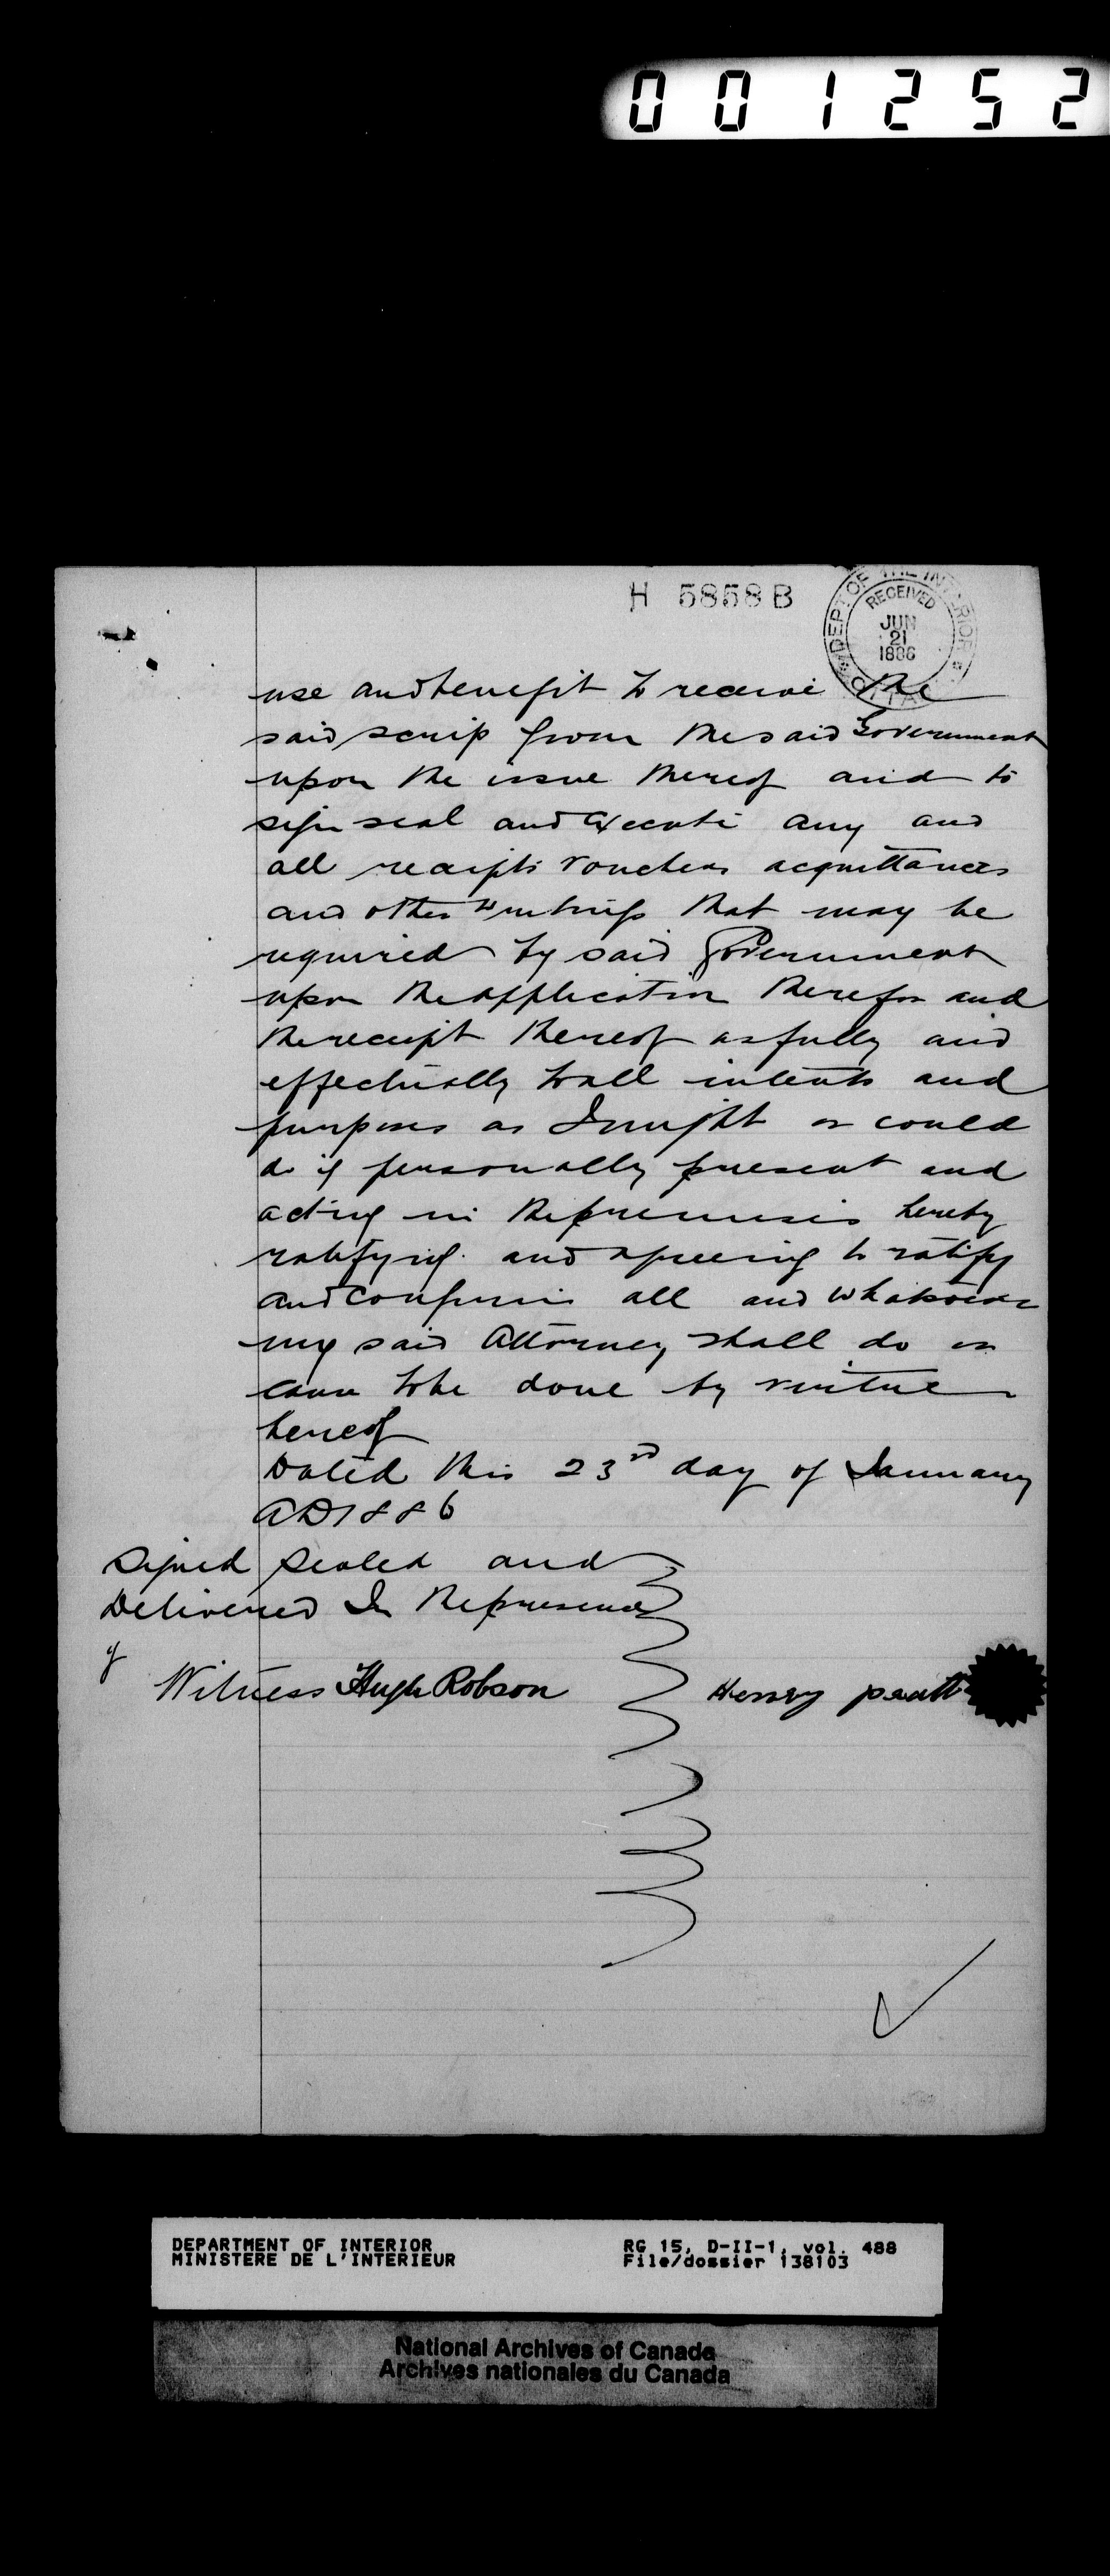 001252
H 5858 B
DEPT OF THE INTERIOR
RECEIVED
JUN
21
1886
OTTAWA
use and benefit to receive the
said scrip from the said Government
upon the issue thereof and to
sign seal and execute any and
all receipts vouchers acquittances
and other writings that may be
required by said Government
upon the application therefor and
the receipt thereof as fully and
effectually to all intents and
purposes as I might or could
do if personally present and
acting in the premises hereby
ratifying and agreeing to ratify
and confirm all and whatsoever
my said Attorney shall do or
cause to be done by virtue
hereof
Dated this 23rd day of January
AD 1886
Signed Sealed and
Delivered In the presence
of
Witness Hugh Robson
Henry pratt
DEPARTMENT OF INTERIOR
MINISTERE DE L'INTERIEUR
RG 15, D-II-1, vol. 488
File/dossier 138103
National Archives of Canada
Archives nationales du Canada